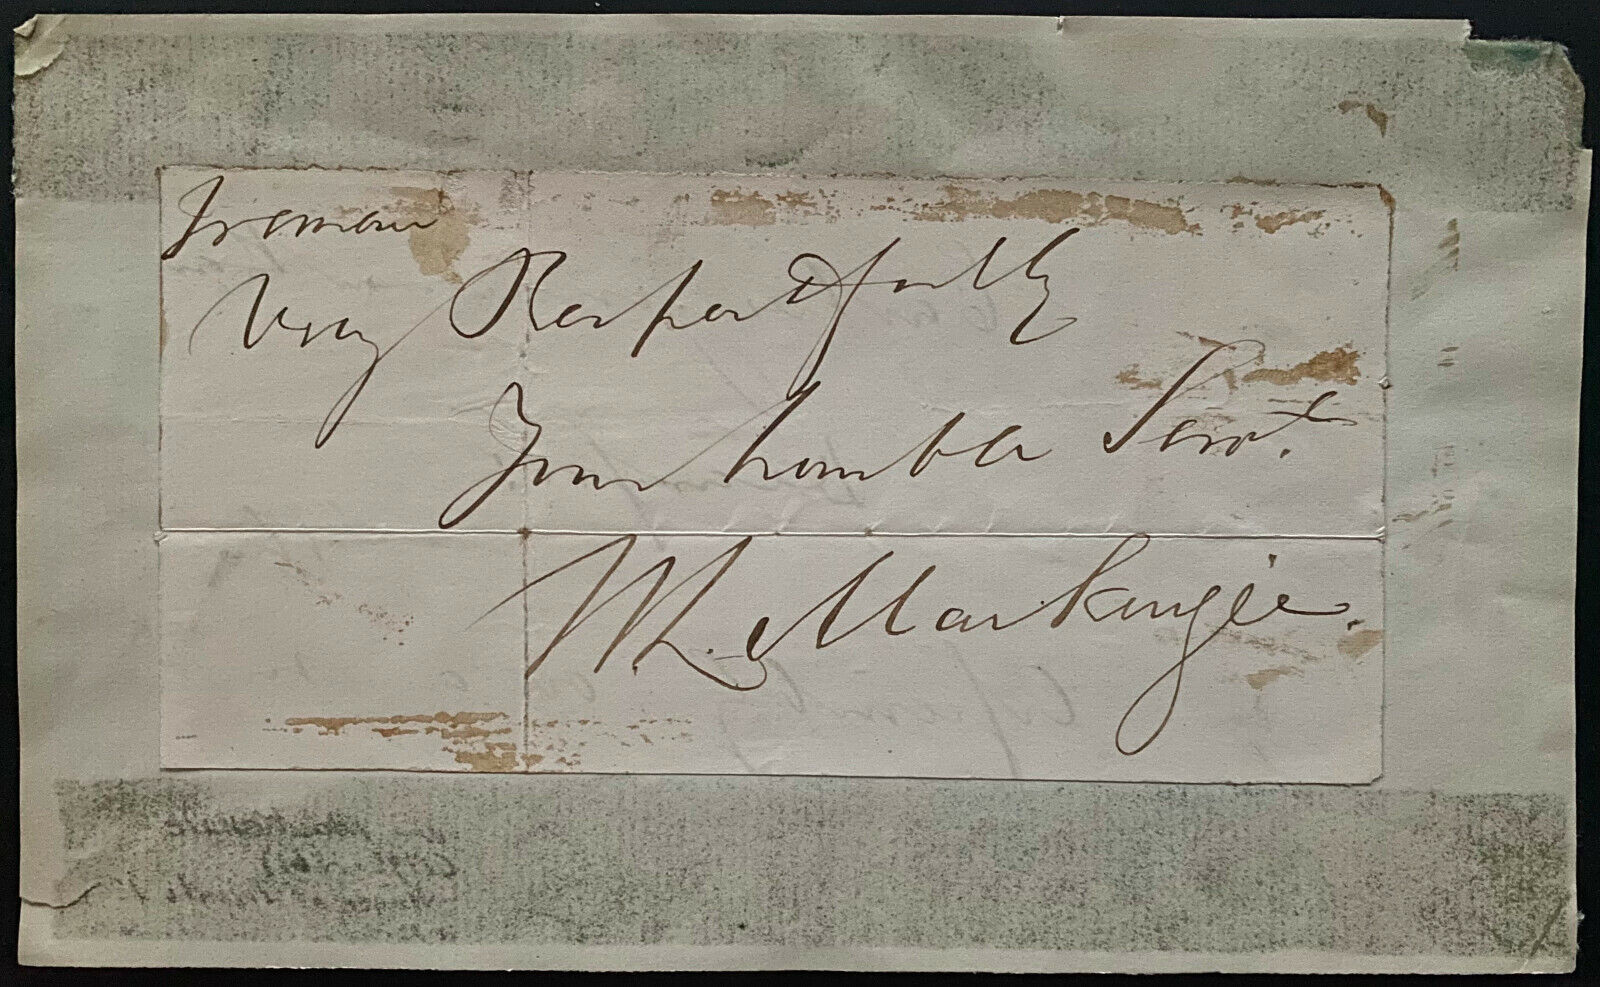 I remain
Very Respectfully
Your humble Servt.
W. L. Mackenzie.